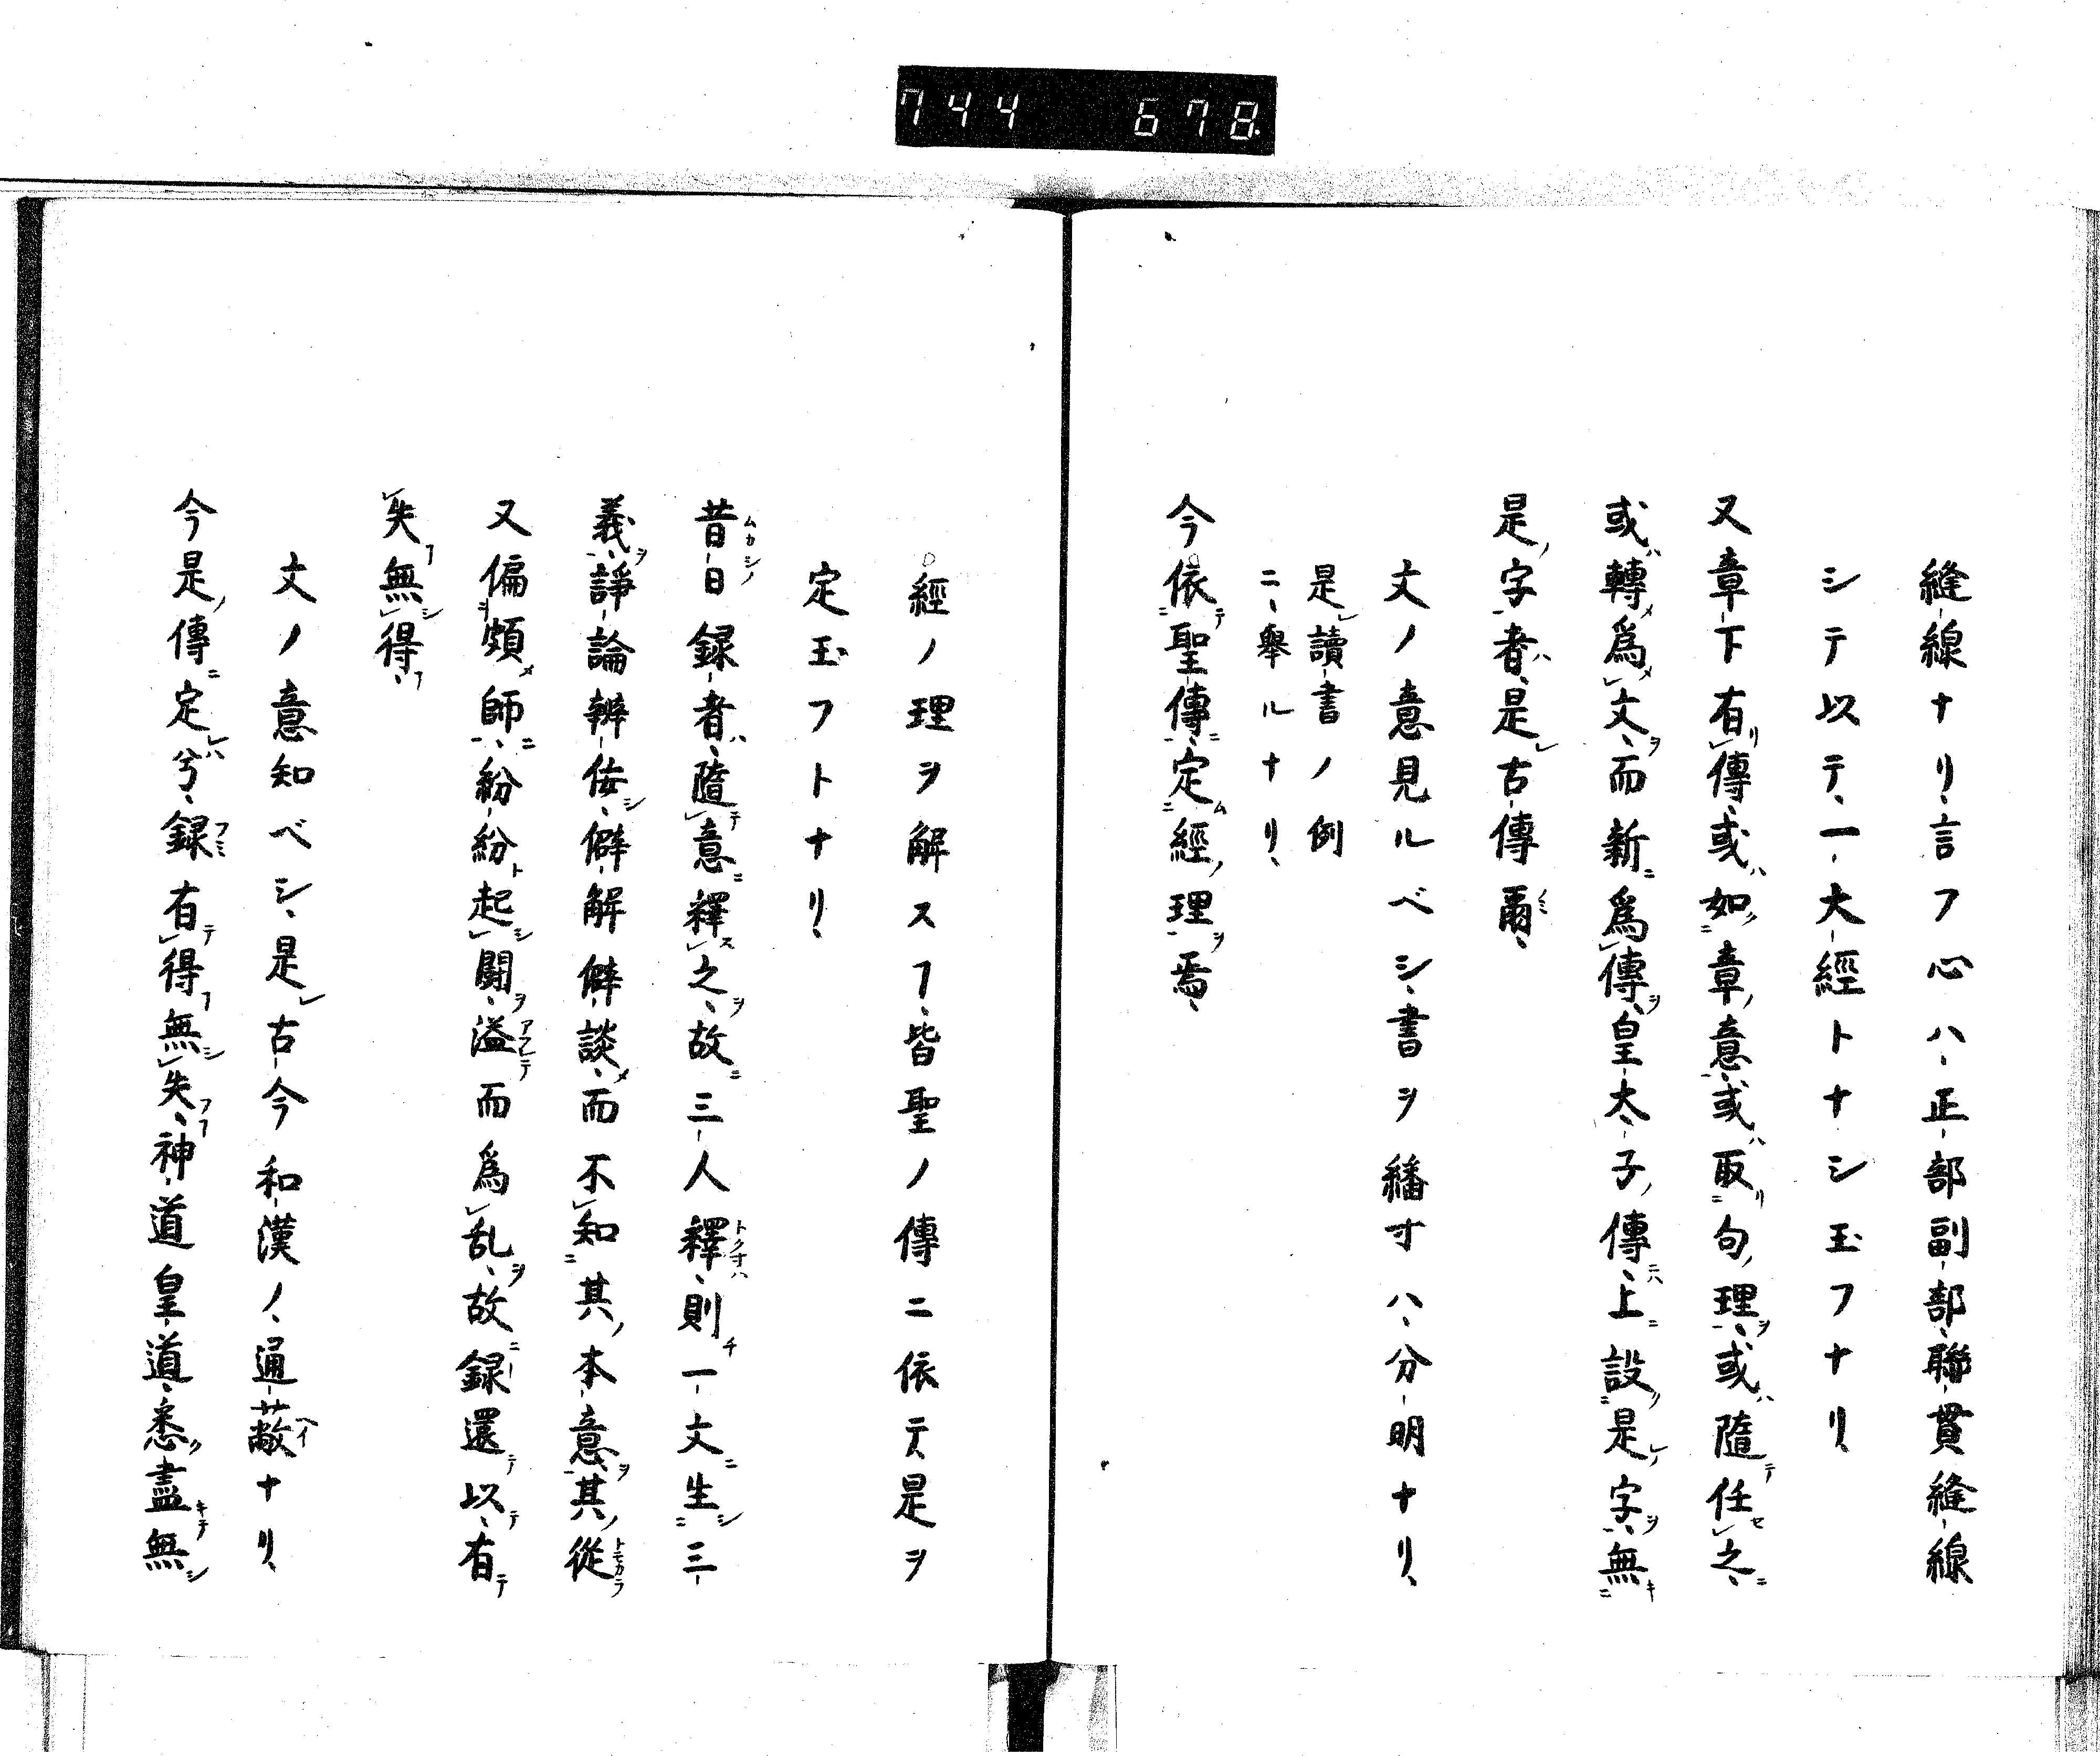 744 678
縫線ナリ、言フ心ハ、正部副部、聯貫縫線
シテ以テ、一大經トナシ玉フナリ、
又章下有傳、或如章意、或取句理、或隨任之、
或轉為文、而新為傳、皇太子傳、上設是字、無
是字者、是古傳爾、
文ノ意見ルベシ、書ヲ繙寸ハ、分明ナリ、
是讀書ノ例
ニ、舉ルナリ、
今依聖傳、定經理焉、
經ノ理ヲ解スフ、皆聖ノ傳ニ依テ、是ヲ
定玉フトナリ、
昔日録者、隨意釋之、故三人釋、則一文生三
義、諍論辨佞、僻解僻談、而不知其本意、其從
又偏頗師、紛紛起鬪、溢而為乱、故録還以、有
失無得、
文ノ意知ベシ、是古今和漢ノ、通蔽ナリ、
今是傳定兮、録有得無失、神道皇道、悉盡無